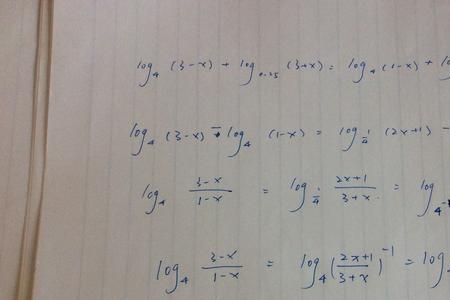 log₄ (3-x) + log₀.₂₅ (3+x) = log₄ (1-x) +
log₄ (3-x) - log₄ (1-x) = log_{1/4} (2x+1) -
log₄ \frac{3-x}{1-x} = log_{1/4} \frac{2x+1}{3+x} = log
log₄ \frac{3-x}{1-x} = log₄ (\frac{2x+1}{3+x})^{-1} = log